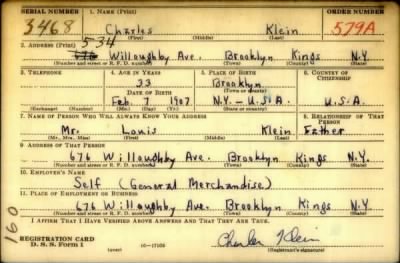 SERIAL NUMBER 1. NAME (Print) ORDER NUMBER
3468 Charles Klein 579A
(First) (Middle) (Last)
534
2. ADDRESS (Print)
676 Willoughby Ave. Brooklyn Kings N.Y.
(Number and street or R. F. D. number) (Town) (County) (State)
3. TELEPHONE 4. AGE IN YEARS 5. PLACE OF BIRTH 6. COUNTRY OF CITIZENSHIP
33 Brooklyn
DATE OF BIRTH (Town or county)
Feb. 7 1907 N.Y. - U.S.A. U.S.A.
(Exchange) (Number) (Mo.) (Day) (Yr.) (State or country)
7. NAME OF PERSON WHO WILL ALWAYS KNOW YOUR ADDRESS 8. RELATIONSHIP OF THAT PERSON
Mr. Louis Klein Father
(Mr., Mrs., Miss) (First) (Middle) (Last)
9. ADDRESS OF THAT PERSON
676 Willoughby Ave. Brooklyn Kings N.Y.
(Number and street or R. F. D. number) (Town) (County) (State)
10. EMPLOYER'S NAME
Self (General Merchandise)
11. PLACE OF EMPLOYMENT OR BUSINESS
676 Willoughby Ave. Brooklyn Kings N.Y.
(Number and street or R. F. D. number) (Town) (County) (State)
I AFFIRM THAT I HAVE VERIFIED ABOVE ANSWERS AND THAT THEY ARE TRUE.
160
REGISTRATION CARD
D. S. S. FORM 1 (over) 16-17105 Charles Klein
(Registrant's signature)